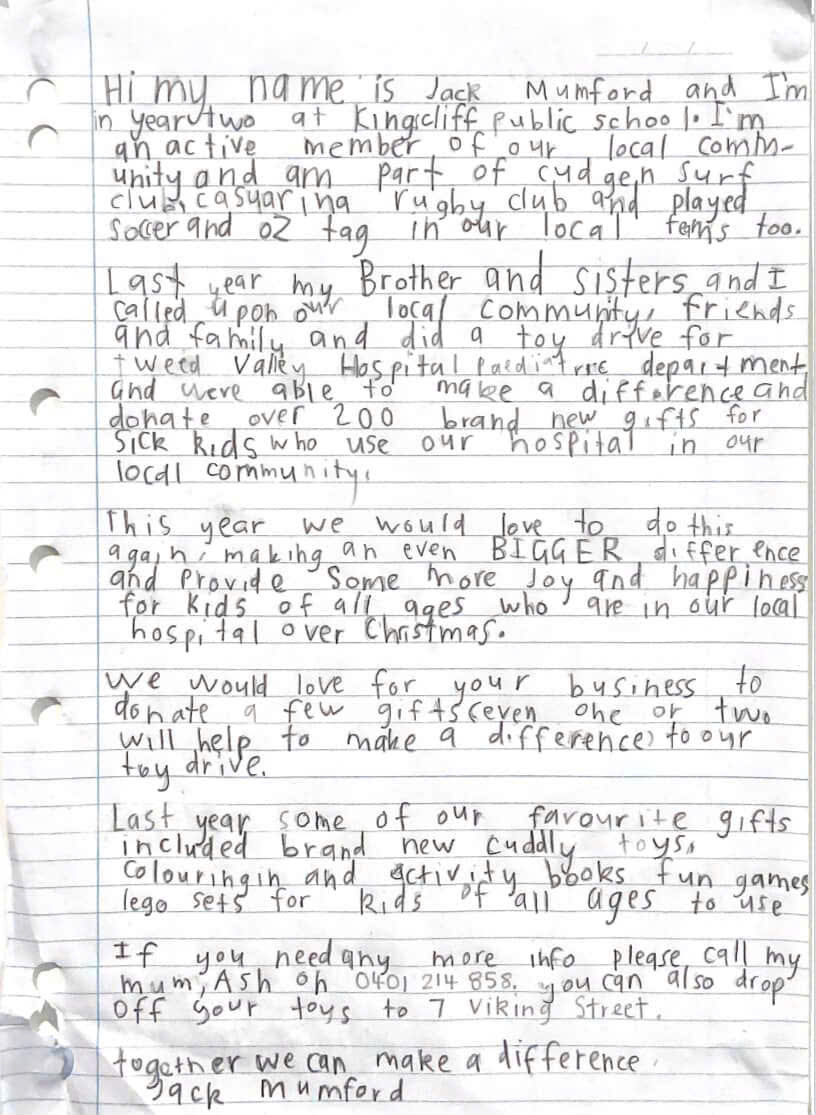 Hi my name is Jack Mumford and I'm
in year two at Kingscliff public school. I'm
an active member of our local comm-
unity and am part of cudgen surf
club, casuarina rugby club and played
soccer and oz tag in our local teams too.
Last year my Brother and sisters and I
called upon our local community, friends
and family and did a toy drive for
tweed Valley Hospital paediatric department
and were able to make a difference and
donate over 200 brand new gifts for
sick kids who use our hospital in our
local community.
This year we would love to do this
again, making an even BIGGER difference
and provide some more joy and happiness
for kids of all ages who are in our local
hospital over Christmas.
We would love for your business to
donate a few gifts (even one or two
will help to make a difference) to our
toy drive.
Last year some of our favourite gifts
included brand new cuddly toys,
colouring in and activity books fun games
lego sets for kids of all ages to use
If you need any more info please call my
mum, Ash on 0401 214 858. you can also drop
off your toys to 7 Viking Street.
together we can make a difference.
Jack Mumford